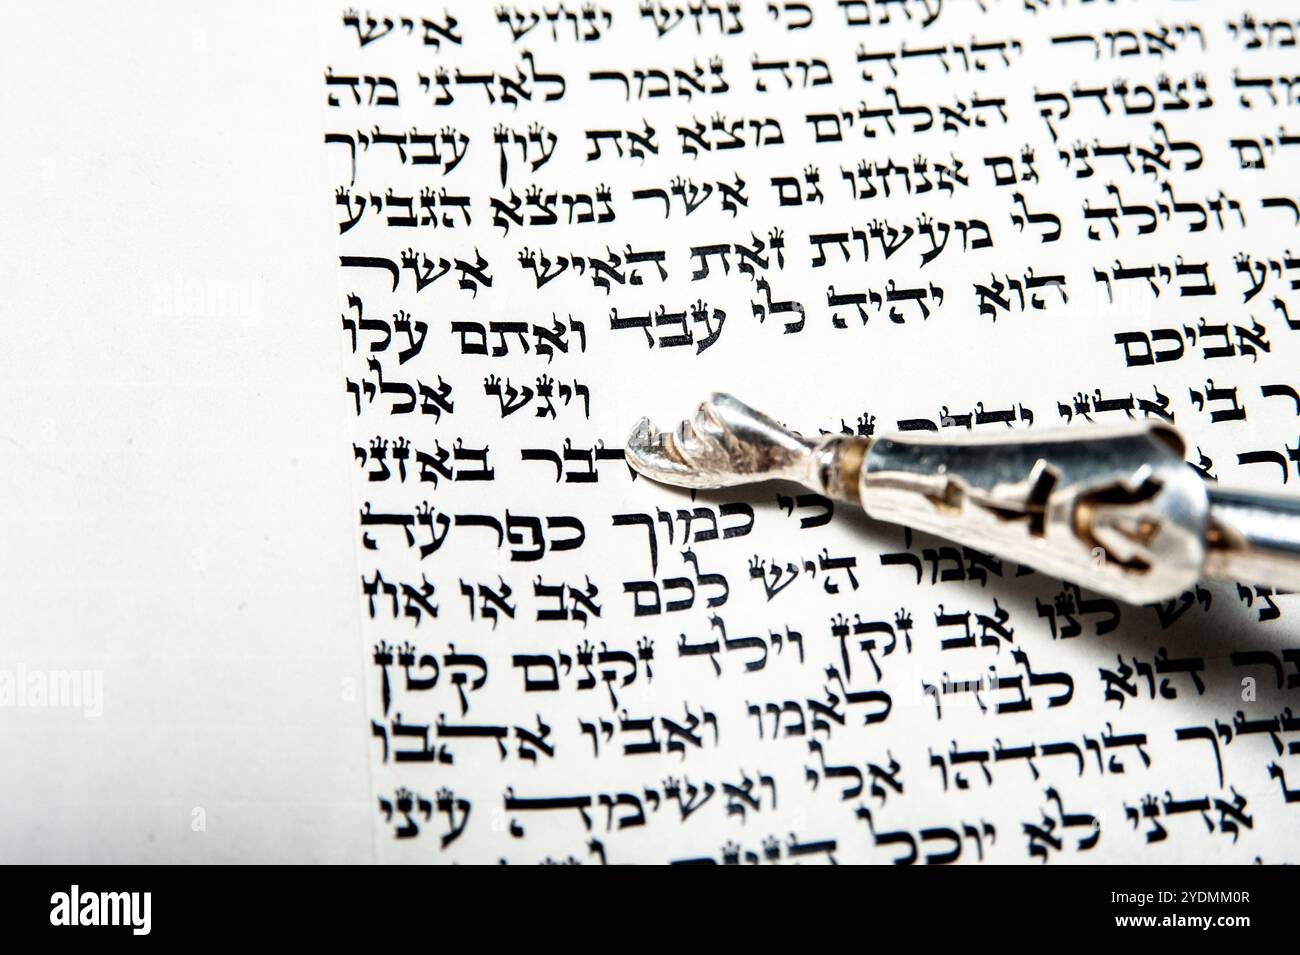 כי נחש ינחש איש
ויאמר יהודה מה נאמר לאדני מה
נצטדק האלהים מצא את עון עבדיך
לאדני גם אנחנו גם אשר נמצא הגביע
וחלילה לי מעשות זאת האיש אשר
בידו הוא יהיה לי עבד ואתם עלו
אביכם
ויגש אליו
בי אדני באזני
כי כמוך כפרעה
היש לכם אב או אח
יש לנו אב זקן וילד זקנים קטן
הוא לבדו לאמו ואביו אהבו
הורדהו אלי ואשימה עיני
אדני לא יוכל
alamy
a
a
a
alamy
Image ID: 2YDMM0R
www.alamy.com